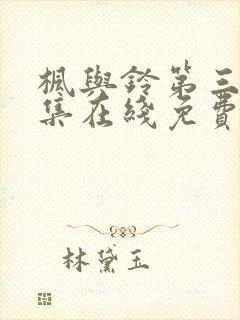 楓與鈴第三
集在綫免費
林黛玉